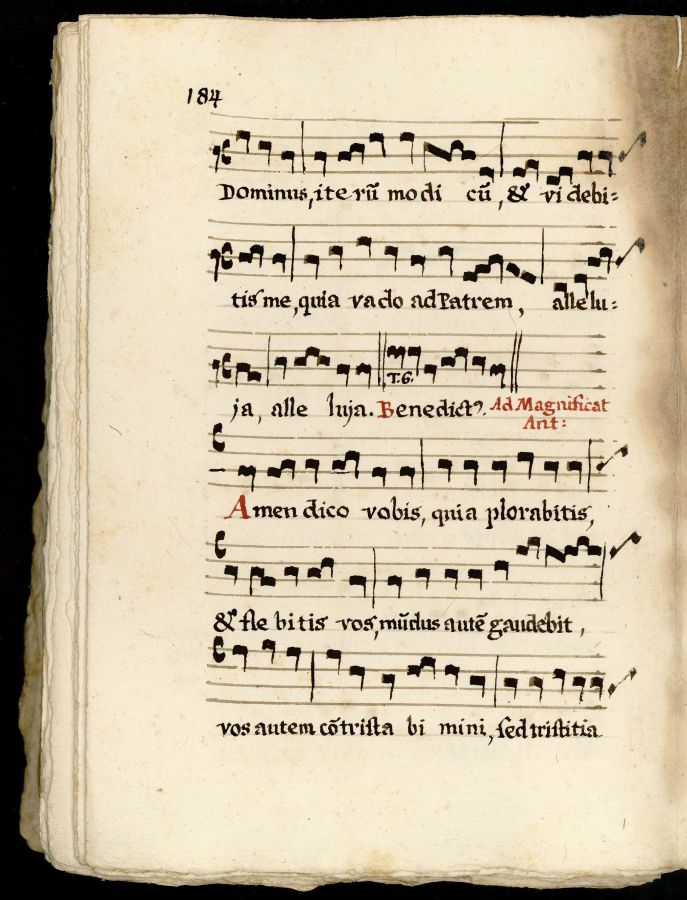 184
Dominus, iterū modi cū, & videbi:
tis me, quia vado ad Patrem, allelu:
T.G.
ja, alle luja. Benedictꝰ. Ad Magnificat
Ant:
Amen dico vobis, quia plorabitis,
& fle bitis vos, mūdus autē gaudebit,
vos autem cōtriſta bi mini, ſed triſtitia